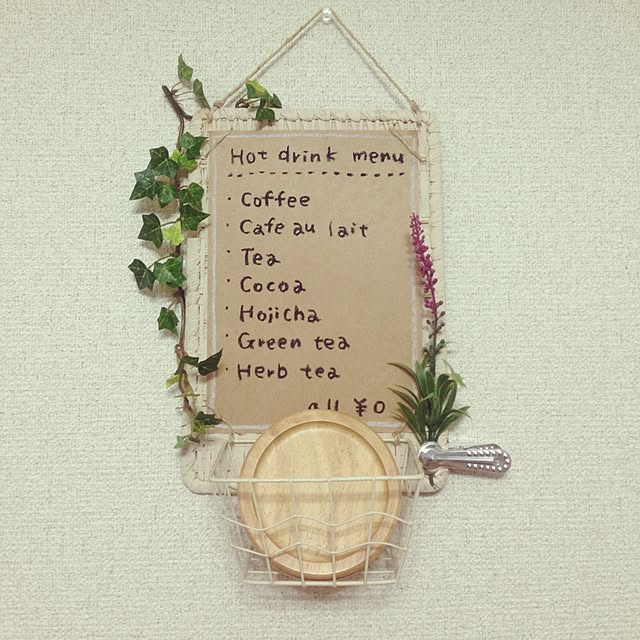 Hot drink menu
· Coffee
· Cafe au lait
· Tea
· Cocoa
· Hojicha
· Green tea
· Herb tea
all ¥0